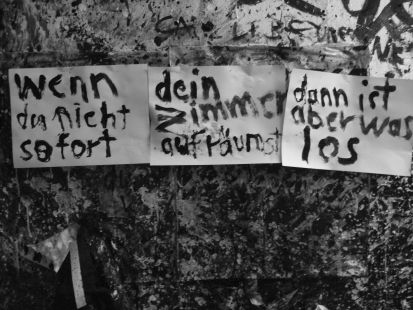 wenn
du nicht
sofort
dein
Zimmer
aufräumst
dann ist
aber was
los